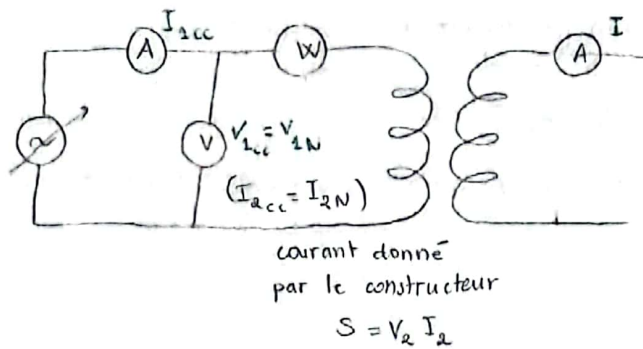 I1cc
I
A
W
A
V
V1cc = V1N
(I2cc = I2N)
courant donné
par le constructeur
S = V2 I2